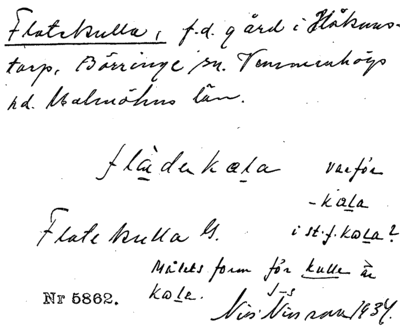 Flatekulla, f.d. gård i Håkans-
torp, Börringe sn. Vemmenhögs
hd. Malmöhus län.
flàdenkæla
varför
-kæla
Flatekulla G.
i st.f. kola?
Målets form för kulle är
kola.
J-s
Nr 5862.
Nils Nilsson 1934.